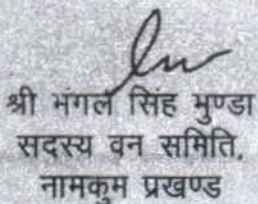 श्री भंगल सिंह मुण्डा
सदस्य वन समिति,
नामकुम प्रखण्ड